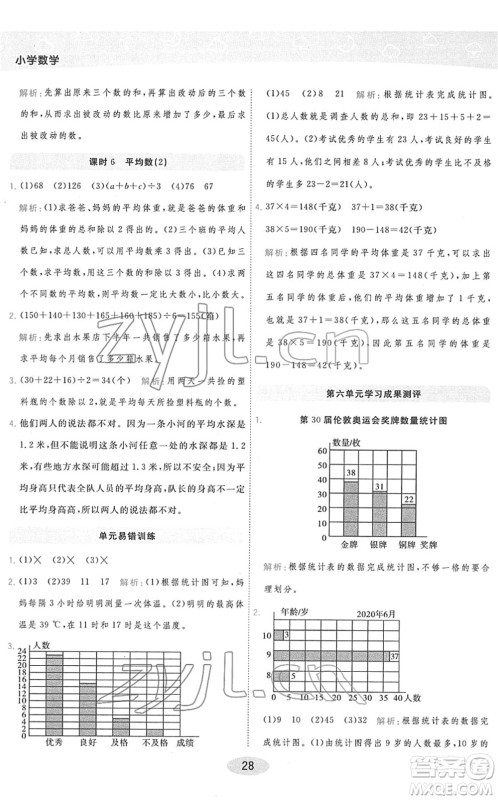 小学数学
解析:先算出原来三个数的和是多少,再算出
改动后这三个数的和是多少,最后用改动后的
三个数的和比原来增加了多少,就可以求出没
改动的数。
课时6 平均数(2)
1. (1)68 (2)126 (3)(a+b+c)÷3 (4)76 67
解析:(1)求爸爸、妈妈的平均体重,就是爸爸的体重和
妈妈的体重的和除以2,得出结果。(2)三个班的平均人
数,求出总人数,再除以3即可。(3)知道三个数,求出三
个数的平均数,就是用三个数的和除以3,得出结果。(4)求
两个不同数的平均数,比大数小,比小数大。
2. (150+140+130+165+160+185)÷6=155(箱)
解析:先求出水果店下半年一共卖了多少箱水果,再求
平均每个月销售了多少箱水果。
3. (30+22+14)÷2=33(个) 解析:用两天一共捡的
塑料瓶的个数,除以天数即可求出平均每天捡的塑料瓶个数。
4. 他们两个都不对,因为这条小河平均水深是1.2
米,但不一定这条小河的任何一处的水深都是1.2
米,有的地方可能比1.2米深,也有可能浅。而平
均身高只代表全队人员的平均身高,不代表每个人
的身高,有可能有人的身高高于平均身高,也可能
有人低于平均身高。
单元易错训练
1. (1)╳ (2)╳ (3)╳
2. (1)3 (2)39 11 17 解析:根据统计图可知,妈
妈每隔3小时给明明测量一次体温;明明的最高体
温是39℃,在11时和17时是这个温度。
3.
人数
24
22
20
18
16
14
12
10
8
6
4
2
0
优秀 良好 及格 不及格 成绩
(1)45 (2)8 21 解析:(1)根据统计表完成统计图。
(2)总人数就是调查人数的总和,所以是23+15+5+2=
45(人)。(3)考试成绩优秀的学生有23人,及格的学生
有15人,所以23-15=8(人);考试成绩优秀的学生有
23人,不及格的学生有2人,所以考试成绩优秀的比不及格
的学生多23-2=21(人)。
4. 37×4=148(千克) 37+1=38(千克)
38×5=190(千克) 190-148=42(千克)
解析:根据四名同学的平均体重是37千克,可以求出
这四名同学的总体重是37×4=148(千克)。又因为加
上第五名同学的体重后,平均体重增加了1千克,所以
五名同学的平均体重是37+1=38(千克),总体重是
38×5=190(千克),那么第五名同学的体重是190-
148=42(千克)。
第六单元学习成果测评
1.
第30届伦敦奥运会奖牌数量统计图
数量/枚
60
50
40
30
20
10
0
38 31 22
金牌 银牌 铜牌 奖牌
解析:根据统计表的数据完成统计图,不够一格的要合
理划分。
2.
年龄/岁 2020年6月
10 3
9 37
8 5
0 5 10 15 20 25 30 35 40 人数
(1)9 (2)45 (3)32 解析:(1)根据统计表的数据完成
统计图,根据统计图的数据得出9岁的人数最多,10岁的
28
zyjl.cn
zyjl.cn
答案圈